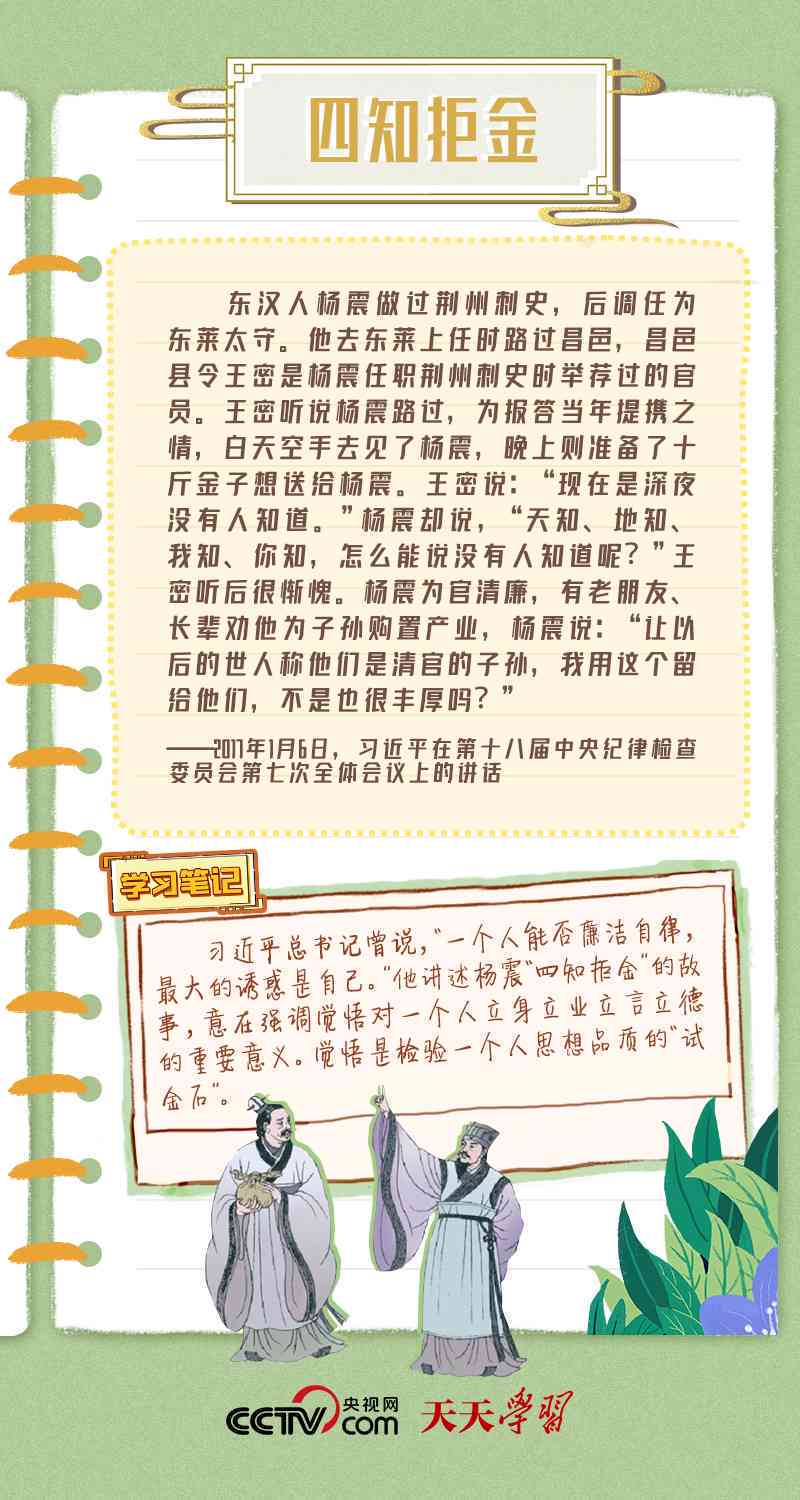 四知拒金
东汉人杨震做过荆州刺史，后调任为
东莱太守。他去东莱上任时路过昌邑，昌邑
县令王密是杨震任职荆州刺史时举荐过的官
员。王密听说杨震路过，为报答当年提携之
情，白天空手去见了杨震，晚上则准备了十
斤金子想送给杨震。王密说：“现在是深夜
没有人知道。”杨震却说，“天知、地知、
我知、你知，怎么能说没有人知道呢？”王
密听后很惭愧。杨震为官清廉，有老朋友、
长辈劝他为子孙购置产业，杨震说：“让以
后的世人称他们是清官的子孙，我用这个留
给他们，不是也很丰厚吗？”
——2017年1月6日，习近平在第十八届中央纪律检查
委员会第七次全体会议上的讲话
学习笔记
习近平总书记曾说，“一个人能否廉洁自律，
最大的诱惑是自己。”他讲述杨震“四知拒金”的故
事，意在强调觉悟对一个人立身立业立言立德
的重要意义。觉悟是检验一个人思想品质的“试
金石”。
CCTV.com 央视网 天天学習